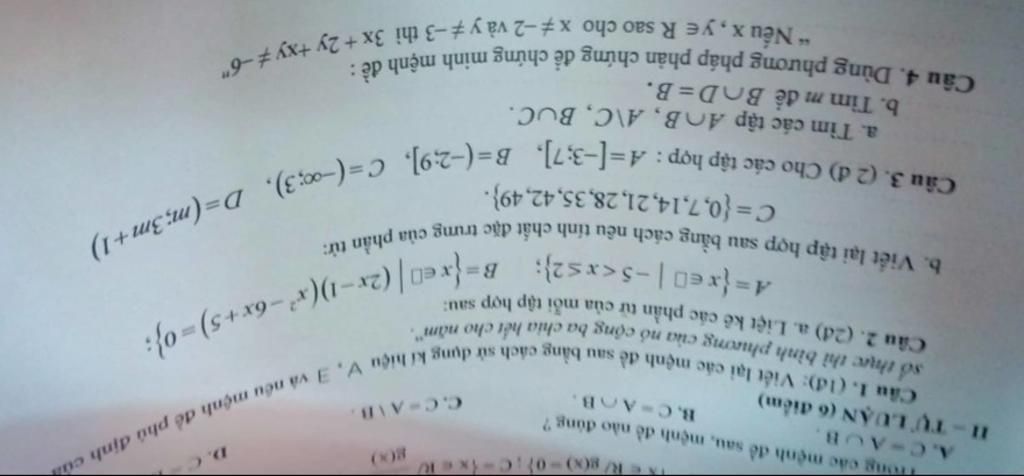 x ∈ R/ g(x) = 0}; C = {x ∈ R/ g(x)
Trong các mệnh đề sau, mệnh đề nào đúng ?
A. C = A ∪ B. B. C = A ∩ B. C. C = A \ B. D. C =
II – TỰ LUẬN (6 điểm)
Câu 1. (1đ): Viết lại các mệnh đề sau bằng cách sử dụng kí hiệu ∀, ∃ và nêu mệnh đề phủ định của
số thực thì bình phương của nó cộng ba chia hết cho năm".
Câu 2. (2đ) a. Liệt kê các phần tử của mỗi tập hợp sau:
A = {x ∈ □ | −5 < x ≤ 2}; B = {x ∈ □ | (2x − 1)(x² − 6x + 5) = 0};
b. Viết lại tập hợp sau bằng cách nêu tính chất đặc trưng của phần tử:
C = {0, 7, 14, 21, 28, 35, 42, 49}.
Câu 3. (2 đ) Cho các tập hợp : A = [−3;7], B = (−2;9], C = (−∞;3), D = (m;3m + 1)
a. Tìm các tập A∩B, A\C, B∪C.
b. Tìm m để B∩D = B.
Câu 4. Dùng phương pháp phản chứng để chứng minh mệnh đề :
" Nếu x, y ∈ R sao cho x ≠ −2 và y ≠ −3 thì 3x + 2y + xy ≠ −6"